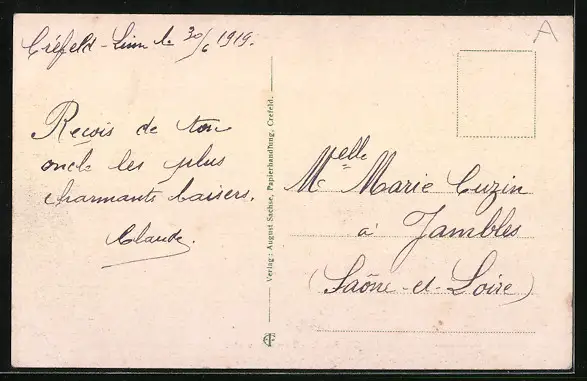 Créfeld-Linn le 30/6 1919.
Reçois de ton
oncle les plus
charmants baisers.
Claude.
Verlag: August Sachse, Papierhandlung, Crefeld.
Melle Marie Cuzin
à Jambles
(Saône-et-Loire)
A